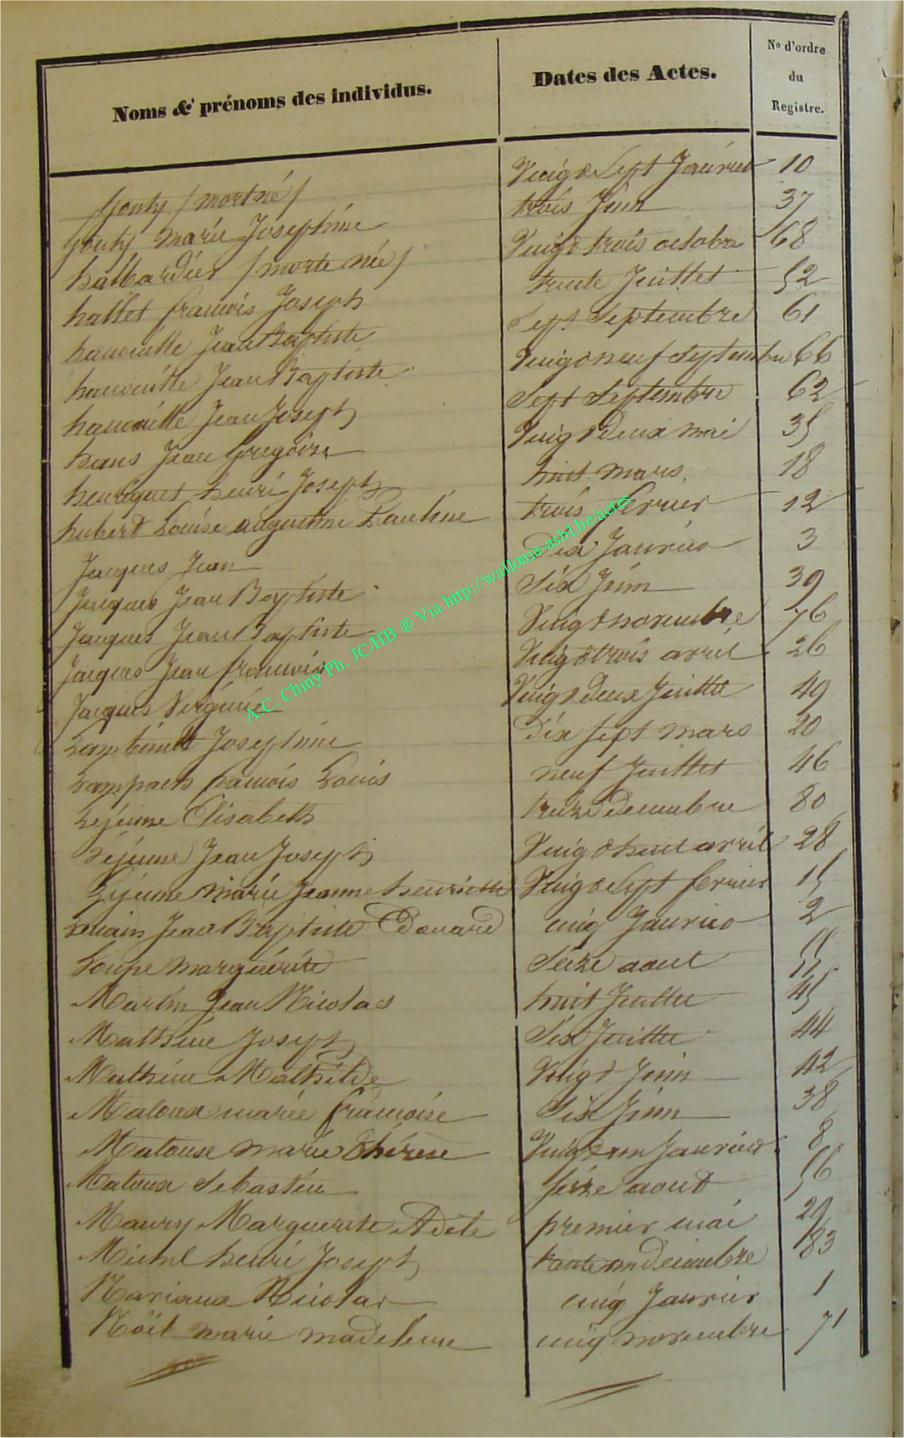 Noms & prénoms des individus. Dates des Actes. No d'ordre du Registre.
Gouty /mort né/ Vingt Sept Janvier 10
Gouty marie Josephine trois Juin 37
halbardier /morte née/ Vingt trois octobre 68
hallet francois Joseph trente Juillet 52
Jean Baptiste Sept Septembre 61
Jean Baptiste Vingt neuf Septembre 66
Jean Joseph Sept Septembre 62
hans Jean Gregoire Vingt deux mai 35
henriquet henri Joseph huit mars 18
hubert Louise augustine Pauline trois fevrier 12
Jacques Jean Dix Janvier 3
Jacques Jean Baptiste Six Juin 39
Jacques Jean Baptiste Vingt novembre 76
Jacques Jean francois Vingt trois avril 26
Jacques Vergénie Vingt deux Juillet 49
Josephine dix sept mars 20
francois Louis neuf Juillet 46
Lejeune Elisabeth treize decembre 80
Lejeune Jean Joseph Vingt huit avril 28
Lejeune marie Jeanne henriette Vingt Sept fevrier 15
Jean Baptiste Edouard cinq Janvier 2
Loupe marguerite Seize aout 55
Martin Jean Nicolas huit Juillet 45
Mathieu Joseph Six Juillet 44
Mathieu Mathilde Vingt Juin 42
Matoux marie francoise Six Juin 38
Matouse marie thérèse Vingt un Janvier 8
Matoux Sebastien Seize aout 56
Maury Marguerite Adele premier mai 29
Michel henri Joseph trente un Decembre 83
Nicolas cinq Janvier 1
Noël marie madeleine cinq novembre 71
A.C. Chiny Ph. JC/HB ® Via http://wallonia-asbl.be/actes